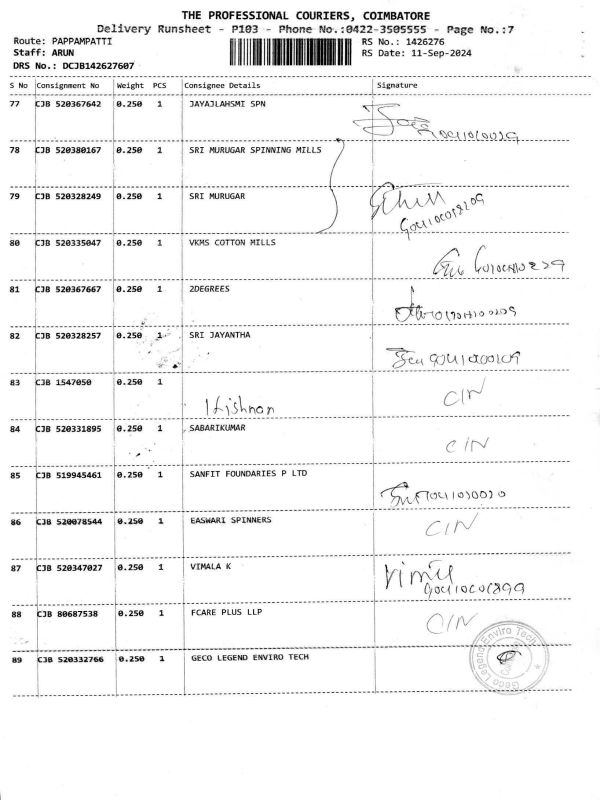 THE PROFESSIONAL COURIERS, COIMBATORE
Delivery Runsheet - P103 - Phone No.:0422-3505555 - Page No.:7
Route: PAPPAMPATTI RS No.: 1426276
Staff: ARUN RS Date: 11-Sep-2024
DRS No.: DCJB142627607
S No Consignment No Weight PCS Consignee Details Signature
77 CJB 520367642 0.250 1 JAYAJLAHSMI SPN
78 CJB 520380167 0.250 1 SRI MURUGAR SPINNING MILLS
79 CJB 520328249 0.250 1 SRI MURUGAR
80 CJB 520335047 0.250 1 VKMS COTTON MILLS
81 CJB 520367667 0.250 1 2DEGREES
82 CJB 520328257 0.250 1 SRI JAYANTHA
83 CJB 1547050 0.250 1
Krishnan C/N
84 CJB 520331895 0.250 1 SABARIKUMAR
C/N
85 CJB 519945461 0.250 1 SANFIT FOUNDARIES P LTD
86 CJB 520078544 0.250 1 EASWARI SPINNERS C/N
87 CJB 520347027 0.250 1 VIMALA K
88 CJB 80687538 0.250 1 FCARE PLUS LLP C/N
89 CJB 520332766 0.250 1 GECO LEGEND ENVIRO TECH
Geco Legend Enviro Tech